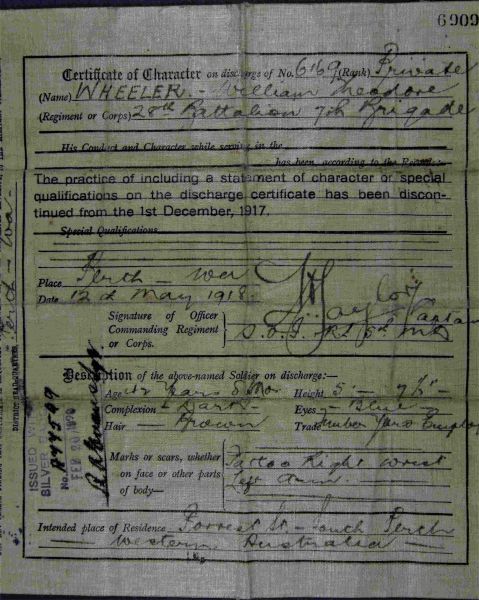 6909
Certificate of Character on discharge of No. 6169 (Rank) Private
(Name) WHEELER - William Theodore
(Regiment or Corps) 28th Battalion 7th Brigade
His Conduct and Character while serving in the
has been, according to the Records:-
The practice of including a statement of character or special
qualifications on the discharge certificate has been discon-
tinued from the 1st December, 1917.
Special Qualifications
Place Perth - Wa
Date 12th May 1918.
Signature of Officer
Commanding Regiment
or Corps.
Taylor
Captain
Description of the above-named Soldier on discharge:-
Age 42 Years 8 Mo. Height 5' - 7½"
Complexion - Dark Eyes - Blue
Hair - Brown Trade Timber Yard
Marks or scars, whether
on face or other parts
of body-
Tattoo Right wrist
Left Arm.
Intended place of Residence Forrest St - South Perth
Western Australia
DISTRICT HEADQUARTERS,
Perth - Wa -
ISSUED WITH
SILVER
No. A44549
FEB 20